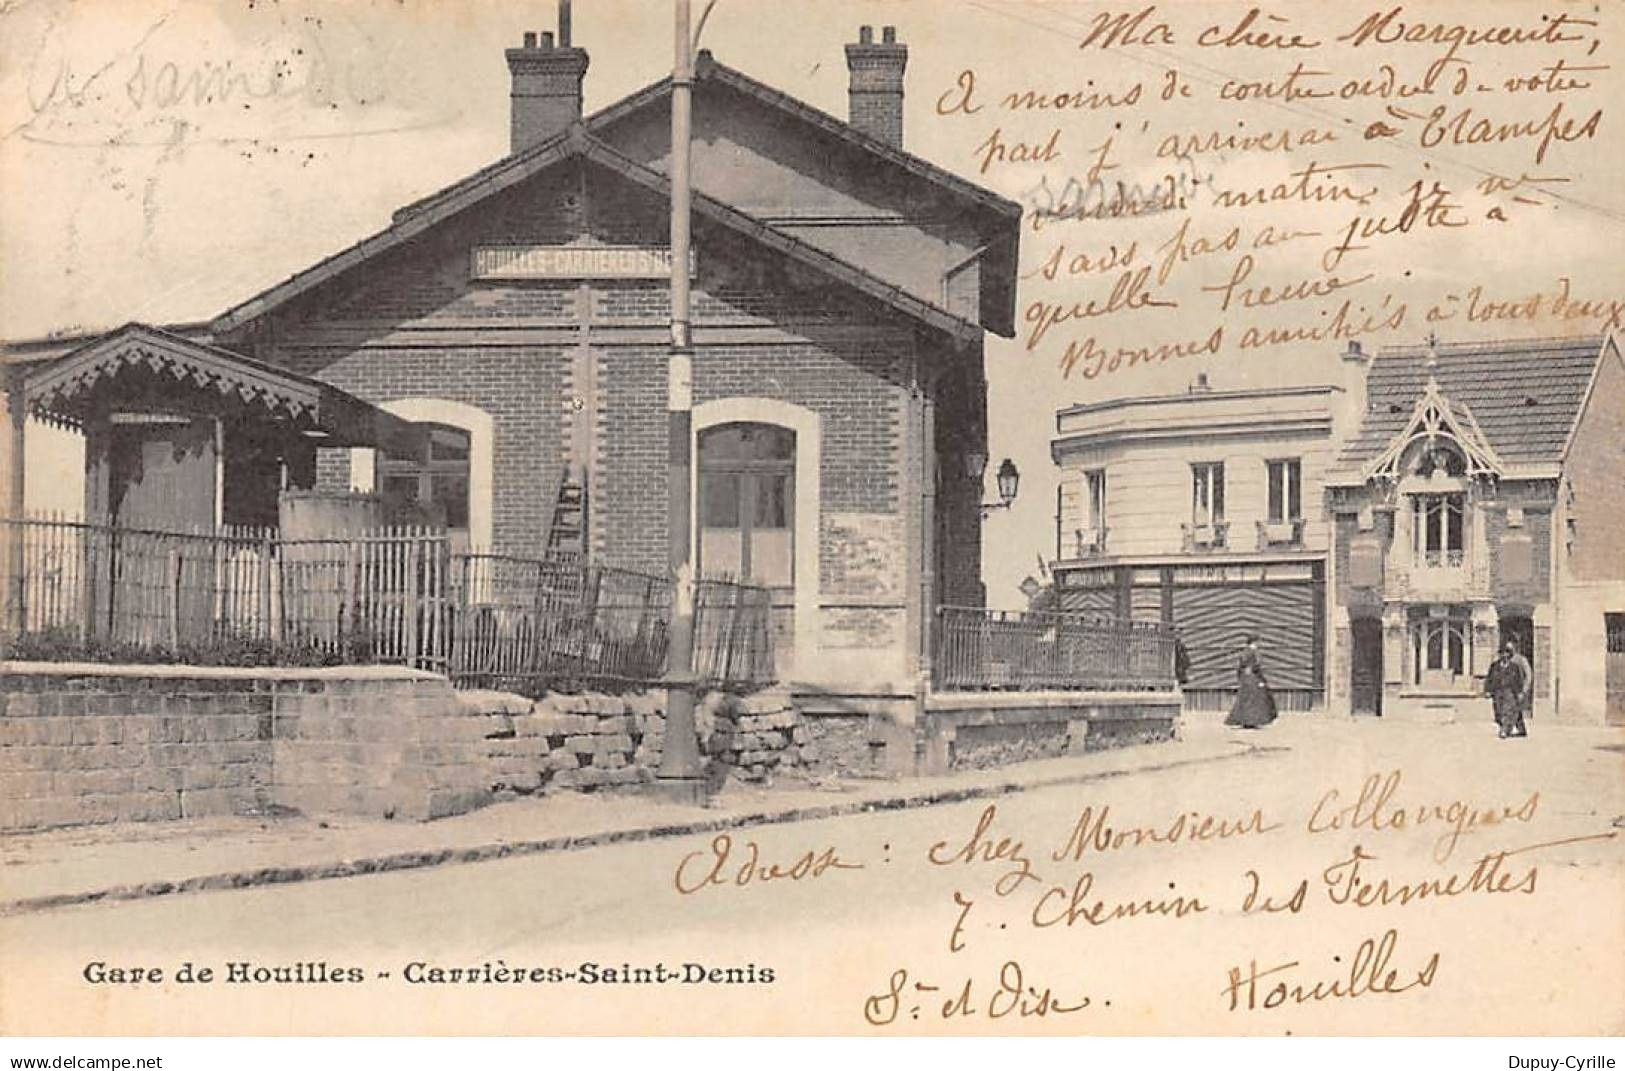 samedi
Ma chère Marguerite,
A moins de contre ordre de votre
part j'arriverai à Etampes
samedi
vendredi matin je ne
sais pas au juste à
quelle heure.
Bonnes amitiés à tous deux
HOUILLES-CARRIERES S^T DENIS
Adresse : chez Monsieur Collongues
7. Chemin des Fermettes
Houilles
S. et Oise.
Gare de Houilles - Carrières-Saint-Denis
www.delcampe.net
Dupuy-Cyrille